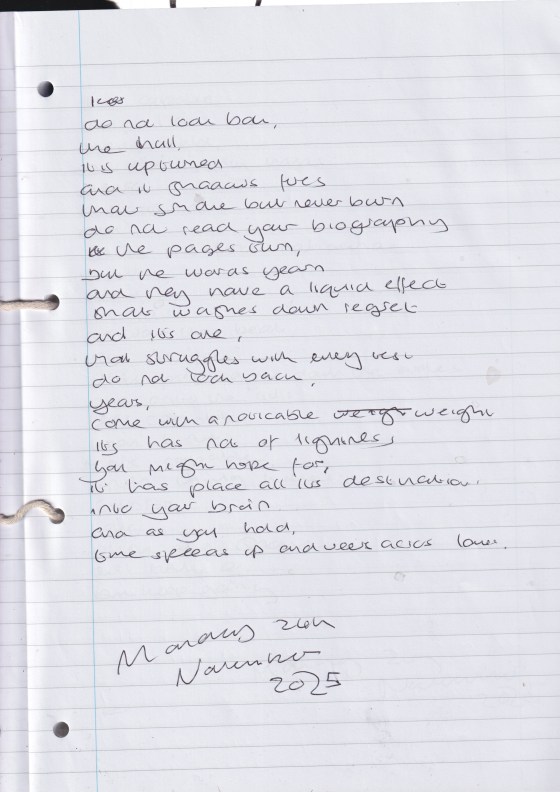 do not look back,
the hall,
it is upturned
and it shadows fires
that smoke but never burn
do not read your biography
the pages turn,
but the words yearn
and they have a liquid effect
that washes down regret
and its one,
that struggles with every rest
do not look back,
years,
come with a noticable weight
its has not of lightness
you might hope for,
it has place all its destination
into your brain
and as you hold,
time speeds up and veers across lanes.
Monday 24th
November
2025